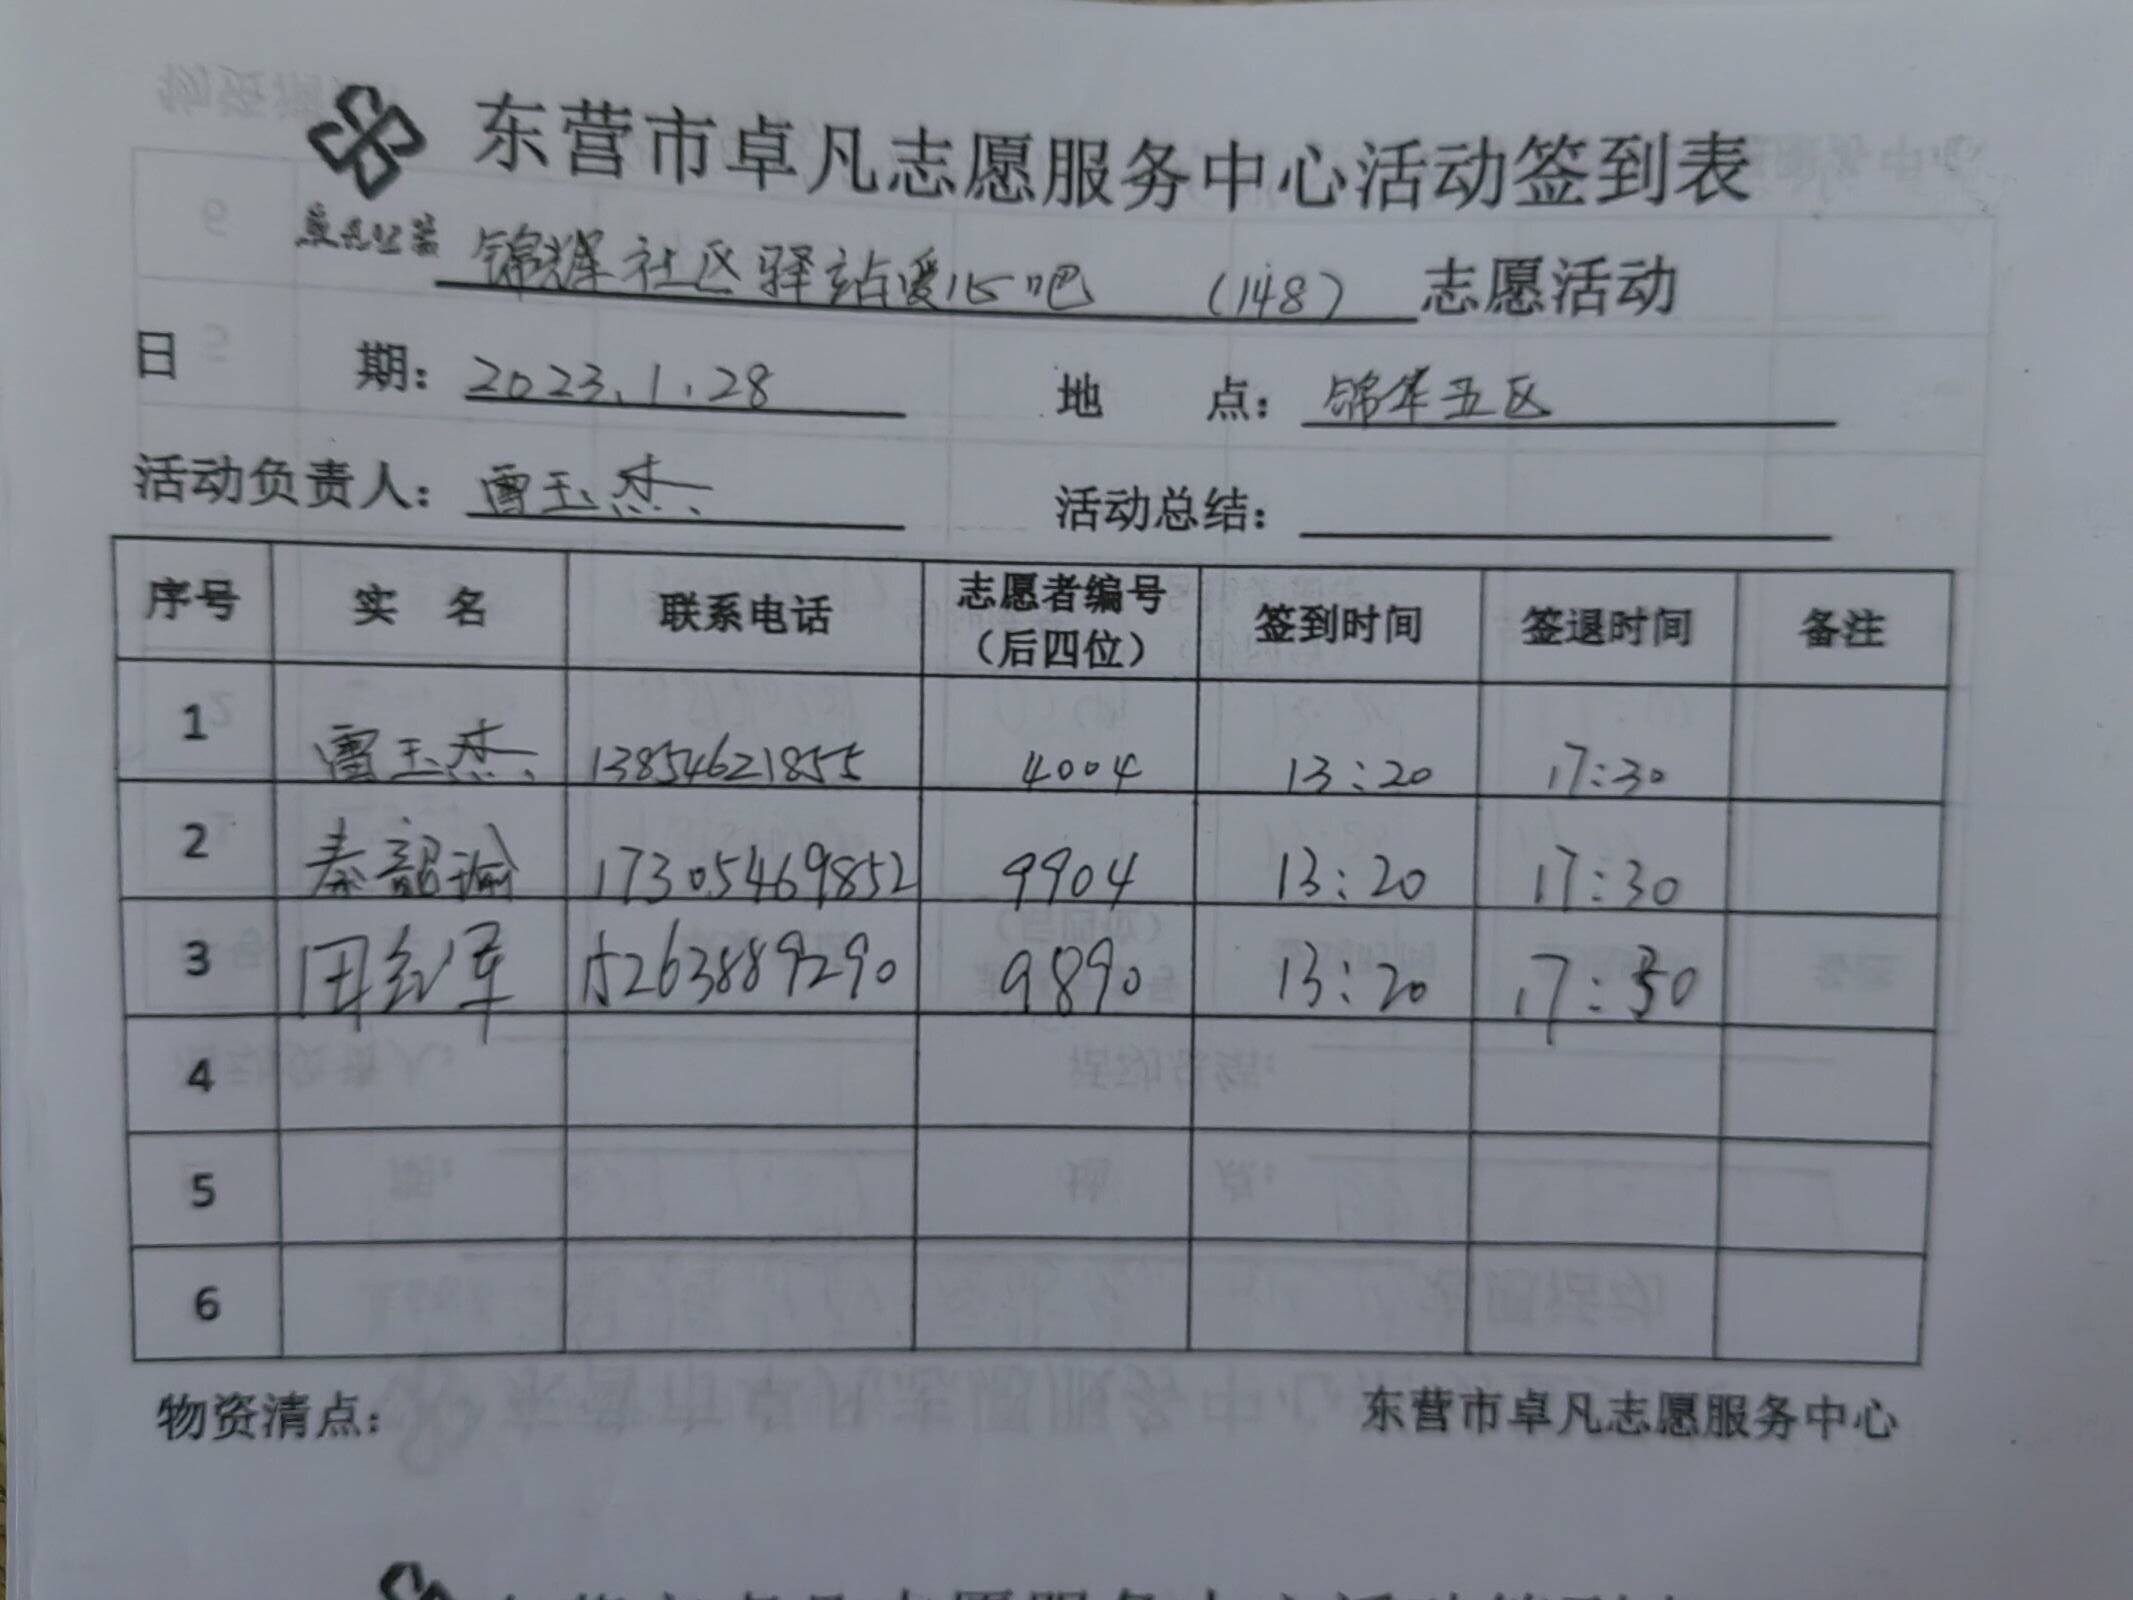 东营市卓凡志愿服务中心活动签到表
卓凡公益 锦辉社区驿站爱心吧 (148) 志愿活动
日 期: 2023.1.28 地 点: 锦华五区
活动负责人: 雷玉杰 活动总结:
序号 实 名 联系电话 志愿者编号(后四位) 签到时间 签退时间 备注
1 雷玉杰 13854621855 4004 13:20 17:30
2 秦韶瑜 17305469852 9904 13:20 17:30
3 田红军 15263889290 9890 13:20 17:30
4
5
6
物资清点: 东营市卓凡志愿服务中心